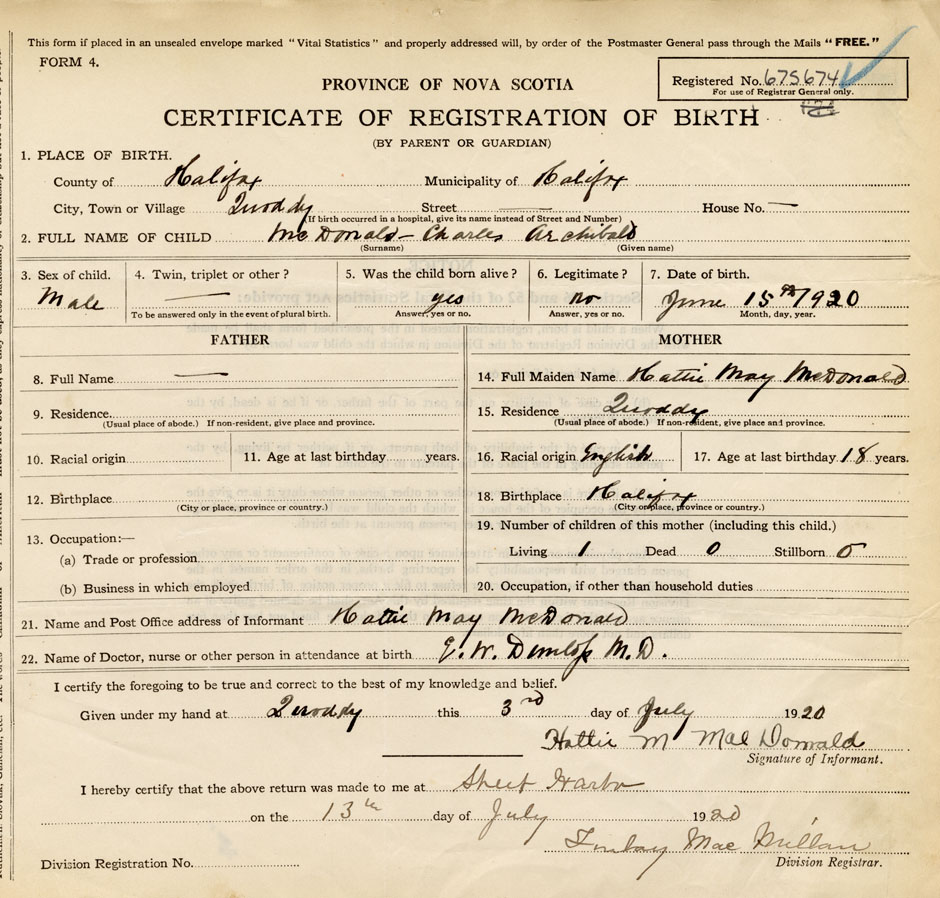 This form if placed in an unsealed envelope marked "Vital Statistics" and properly addressed will, by order of the Postmaster General pass through the Mails "FREE."
FORM 4.
Registered No. 675674
For use of Registrar General only.
PROVINCE OF NOVA SCOTIA
CERTIFICATE OF REGISTRATION OF BIRTH
(BY PARENT OR GUARDIAN)
1. PLACE OF BIRTH.
County of Halifax Municipality of Halifax
City, Town or Village Quoddy Street — House No. —
(If birth occurred in a hospital, give its name instead of Street and Number)
2. FULL NAME OF CHILD McDonald - Charles Archibald
(Surname) (Given name)
3. Sex of child. 4. Twin, triplet or other? 5. Was the child born alive? 6. Legitimate? 7. Date of birth.
Male — yes no June 15th 1920
To be answered only in the event of plural birth. Answer, yes or no. Answer, yes or no. Month, day, year.
FATHER
8. Full Name —
9. Residence.
(Usual place of abode.) If non-resident, give place and province.
10. Racial origin 11. Age at last birthday years.
12. Birthplace
(City or place, province or country.)
13. Occupation:—
(a) Trade or profession
(b) Business in which employed
MOTHER
14. Full Maiden Name Hattie May McDonald
15. Residence Quoddy
(Usual place of abode.) If non-resident, give place and province.
16. Racial origin English 17. Age at last birthday 18 years.
18. Birthplace Halifax
(City or place, province or country.)
19. Number of children of this mother (including this child.)
Living 1 Dead 0 Stillborn 0
20. Occupation, if other than household duties
21. Name and Post Office address of Informant Hattie May McDonald
22. Name of Doctor, nurse or other person in attendance at birth E. W. Dunlop M.D.
I certify the foregoing to be true and correct to the best of my knowledge and belief.
Given under my hand at Quoddy this 3rd day of July 1920
Hattie M MacDonald
Signature of Informant.
I hereby certify that the above return was made to me at Sheet Harbor
on the 13th day of July 1920
Finlay MacMillan
Division Registrar.
Division Registration No.